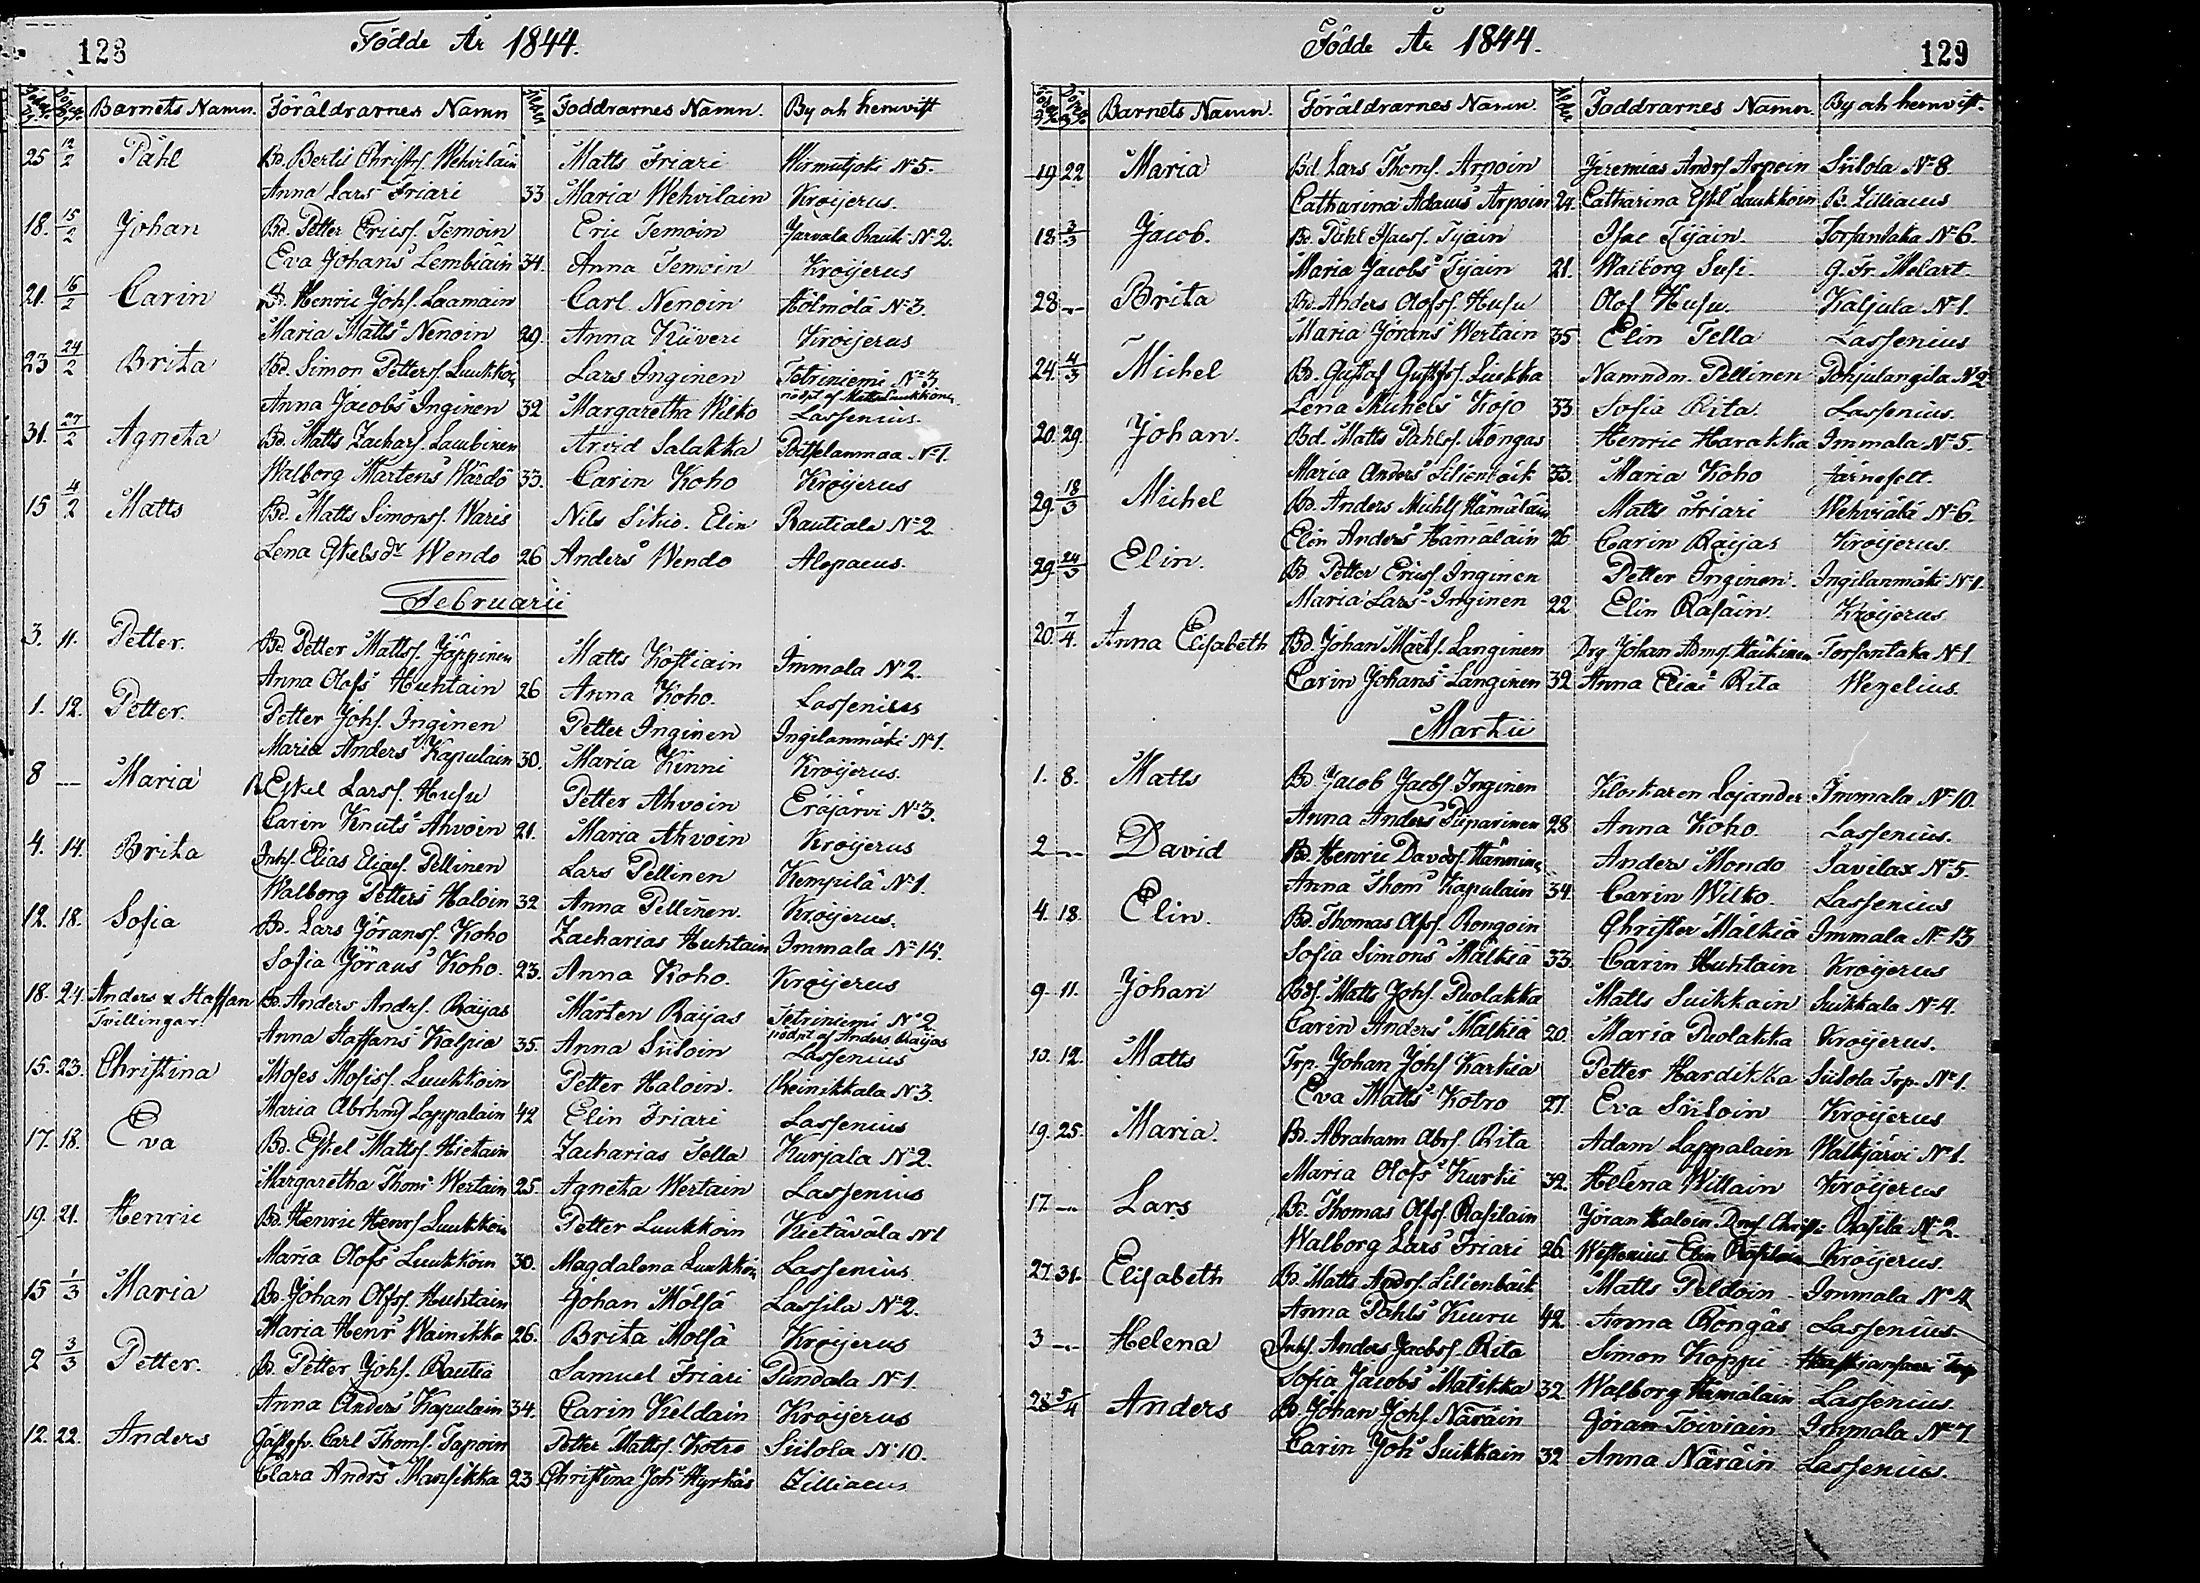 128
Födde År 1844.
Barnets Namn. Föräldrarnes Namn Ålder Foddrarnes Namn. By och hemvist
25 12/2 Påhl Bd. Bertil Christfs. Wehvilain Matts Friari Hirmutjoki No 5.
Anna Lars Friari 33 Maria Wehvilain Kroijerus.
18. 15/2 Johan Bd. Petter Ericss. Temoin Eric Temoin Jarvala Rauk No 2.
Eva Johans Lembiain 34. Anna Temoin Kroijerus
21. 16/2 Carin Bd. Henric Johs. Laamain Carl Nenoin Hölmölä No 3.
Maria Matts Nenoin 29. Anna Kuveri Kroijerus
23 24/2 Brita Bd. Simon Petterss. Luukkoin Lars Inginen Tetriniemi No 3
nödpt af Matts Luukkoin
Anna Jacobs Inginen 32 Margaretha Wilko Lassenius.
31. 27/2 Agneta Bd. Matts Zachars. Laubinen Arvid Salakka No 1.
Walborg Martens Wardö 33. Carin Koho Kroijerus
15 4/2 Matts Bd. Matts Simonss. Waris Nils Sikio. Elin Rautiala No 2
Lena Eskelsdr Wendo 26 Anders Wendo Alopaeus.
Februarii
3. 11. Petter. Bd. Petter Mattss. Jöppinen Matts Kostiain Immala No 2.
Anna Olofs Huhtain 26 Anna Koho. Lassenius
1. 12. Petter. Petter Johs. Inginen Petter Inginen Ingilanmäki No 1.
Maria Anders Kapulain 30. Maria Kinni Kroijerus.
8 — Maria B. Eskel Larss. Husu Petter Ahvoin Eräjärvi No 3.
Carin Knuts Ahvoin 21. Maria Ahvoin Kroijerus
4. 14. Brita Inhs. Elias Eliaes. Pellinen Lars Pellinen Kempilä No 1.
Walborg Petters Haloin 32 Anna Pellinen. Kroijerus.
12. 18. Sofia Bd. Lars Jöranss. Koho Zacharias Huhtain Immala No 14.
Sofia Jörans Koho. 23. Anna Koho. Kroijerus
18. 24. Anders & Staffan Bd. Anders Andrs. Raijas Mårten Raijas Tetriniemi No 2
Tvillingar. nödpt af Anders Raijas
Anna Staffans Kalpio 35. Anna Siiloin Lassenius
15. 23. Christina Moses Mosiss. Luukkoin Petter Haloin. Reinikkala No 3.
Maria Abrhms Lappalain 42 Elin Friari Lassenius
17. 18. Eva Bd. Eskel Mattss. Hietain Zacharias Tella Kurjala No 2.
Margaretha Thoms Wertain 25. Agneta Wertain Lassenius
19. 21. Henric Bd. Henric Henrs. Luukkoin Petter Luukkoin Kietäväla No 1
Maria Olofs Luukkoin 30. Magdalena Luukkoin Lassenius
15 1/3 Maria Bd. Johan Olfss. Huhtain Johan Mölsä Lassila No 2.
Maria Henrs Wainikka 26. Brita Molsä Kroijerus
2 3/3 Petter. Bd. Petter Johs. Rautia Samuel Friari Pundala No 1.
Anna Anders Kapulain 34. Carin Keldain Kroijerus
12. 22. Anders Carl Thoms. Tapoin Petter Mattss. Kotro Siilola No 10.
Clara Andrs Mansikka 23 Christina Joh. Hyrkäs Zilliacus
129
Födde År 1844.
Barnets Namn. Föräldrarnes Namn. Ålder Foddrarnes Namn. By och hemvist.
19 22 Maria Bd. Lars Thoms. Arpoin Jeremias Andrs. Arpoin Siilola No 8.
Catharina Adams Arpoin 24. Catharina Eskl Luukkoin B. Zilliacus
18 3/3 Jacob. Bd. Påhl Isacs. Tijain Isac Tijain. Torsantaka No 6.
Maria Jacobs Tijain 21. Walborg Susi. G. Fr. Melart
28 — Brita Bd. Anders Olofss. Husu Olof Husu. Kaljula No 1.
Maria Jörans Wertain 35 Elin Tella Lassenius
24. 4/3 Michel Bd. Gustaf Gustfs. Liukka Namndm. Pellinen Pohjulangila No 2
Lena Michels Kojo 33 Sofia Rita. Lassenius.
20. 29. Johan. Bd. Matts Påhlss. Röngas Henric Harakka Immala No 5.
Maria Anders Lilienbäck 33. Maria Koho Järnefelt.
29. 18/3 Michel Bd. Anders Michls Hämäläin Matts Friari Wehviäki No 6.
Elin Anders Hämäläin 26 Carin Raijas Kroijerus.
29. 24/3 Elin. Bd. Petter Ericss. Inginen Petter Inginen. Ingilanmäki No 1.
Maria Lars Inginen 22. Elin Räsäin. Kroijerus
20. 7/4. Anna Elisabeth Bd. Johan Märts. Langinen Drg Johan Admss. Häikinen Torsantaka No 1
Carin Johans Langinen 32 Anna Elias Rita Wegelius.
Martii
1. 8. Matts Bd. Jacob Jacobs. Inginen Klockaren Lojander Immala No 10.
Anna Anders Piiparinen 28 Anna Koho Lassenius.
2 — David Bd. Henric Davds. Hännine Anders Mondo Savilax No 5.
Anna Thoms Kapulain 34. Carin Wilko. Lassenius
4. 18. Elin. Bd. Thomas Olfss. Rongoin Christer Mälkiä Immala No 13
Sofia Simons Mälkiä 33. Carin Huhtain Kroijerus
9. 11. Johan Bds. Matts Johs. Puolakka Matts Suikkain Suikkala No 4.
Carin Anders Mälkiä 20. Maria Puolakka Kroijerus.
10. 12. Matts Trp. Johan Johs Karhia Petter Hardikka Siilola Trp. No 1.
Eva Matts Kotro 27. Eva Siiloin Kroijerus
19. 25. Maria. Bd. Abraham Abrs. Rita Adam Lappalain Walkjärvi No 1.
Maria Olofs Kurki 32. Helena Willain Kroijerus
17 — Lars Bd. Thomas Olfss. Rasilain Jöran Haloin Rasila No 2.
Walborg Lars Friari 26. Westenius Elin Rasilain Kroijerus.
27. 31. Elisabeth Bd. Matts Andrs. Lilienbäck Matts Peldoin Immala No 4
Anna Påhls Kuuru 42. Anna Röngäs Lassenius
3 — Helena Inhs. Anders Jacobss. Rita Simon Koppi Trp
Sofia Jacobs Matikka 32 Walborg Hämäläin Lassenius
28 5/4 Anders Bd. Johan Johs. Näräin Jöran Toiviain Immala No 7.
Carin Joh. Suikkain 32 Anna Näräin Lassenius.